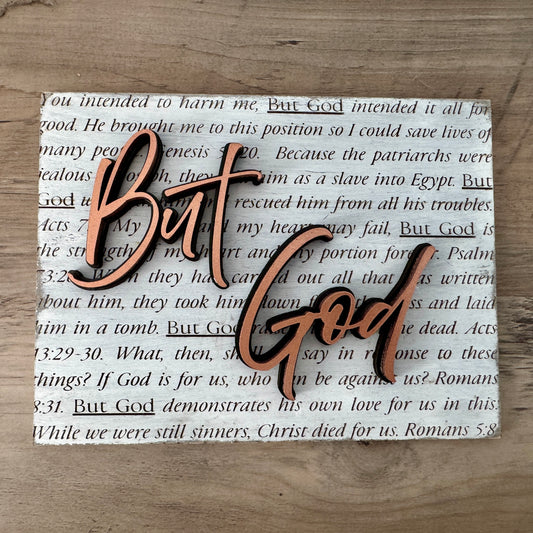 You intended to harm me, But God intended it all for
good. He brought me to this position so I could save lives of
many peo enesis 5 20. Because the patriarchs were
jealous Joseph, they im as a slave into Egypt. But
God w rescued him from all his troubles.
Acts 7 My my heart may fail, But God is
the strength of my heart and my portion forever. Psalm
73:2 When they had carried out all that was written
about him, they took him down ss and laid
him in a tomb. But God raised he dead. Acts
13:29-30. What, then, sh say in response to these
things? If God is for us, who can be against us? Romans
8:31. But God demonstrates his own love for us in this.
While we were still sinners, Christ died for us. Romans 5:8
But
God